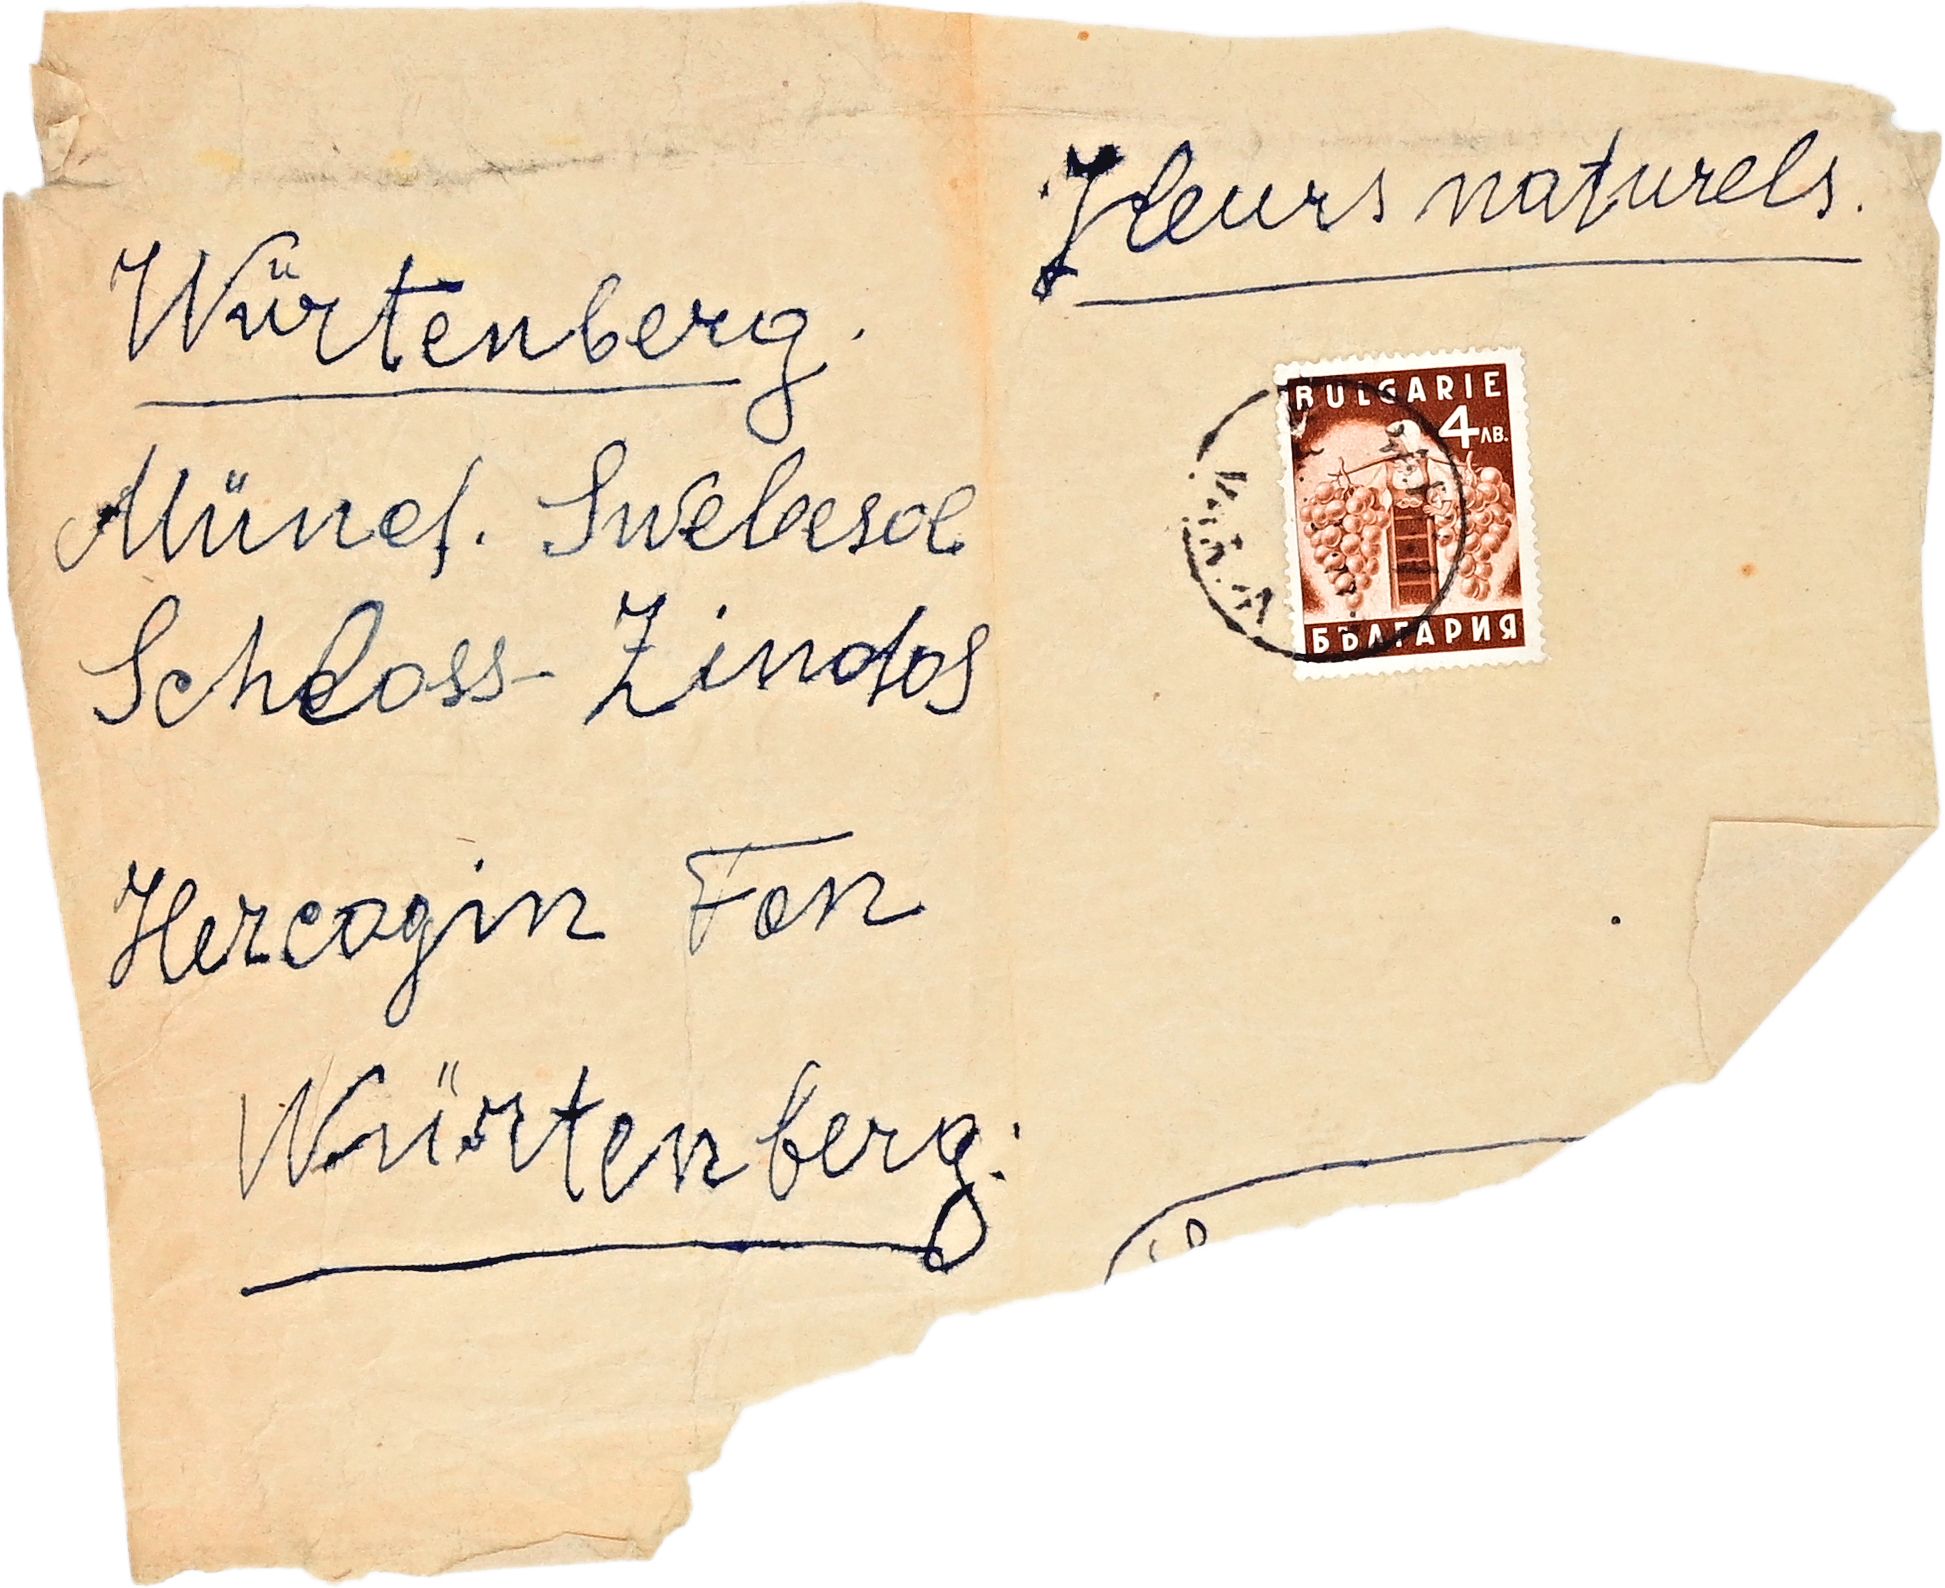 Fleurs naturels.
Würtenberg.
Münch. Swebesde
Schloss-Lindos
Hercogin Fon
Würtenberg.
BULGARIE
4ЛВ.
БЪЛГАРИЯ